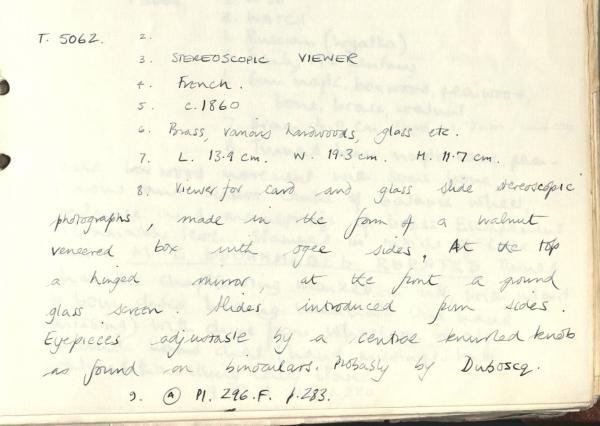 T. 5062. 2.
3. STEREOSCOPIC VIEWER
4. French.
5 c.1860
6. Brass, various hardwoods, glass etc.
7. L. 13.9 cm. W. 19.3 cm. H. 11.7 cm.
8. Viewer for card and glass slide stereoscopic
photographs, made in the form of a walnut
veneered box with ogee sides, At the top
a hinged mirror, at the front a ground
glass screen. Slides introduced from sides.
Eyepieces adjustable by a central knurled knob
as found on binoculars. Probably by Duboscq.
9. (A) Pl. 296.F. p.283.